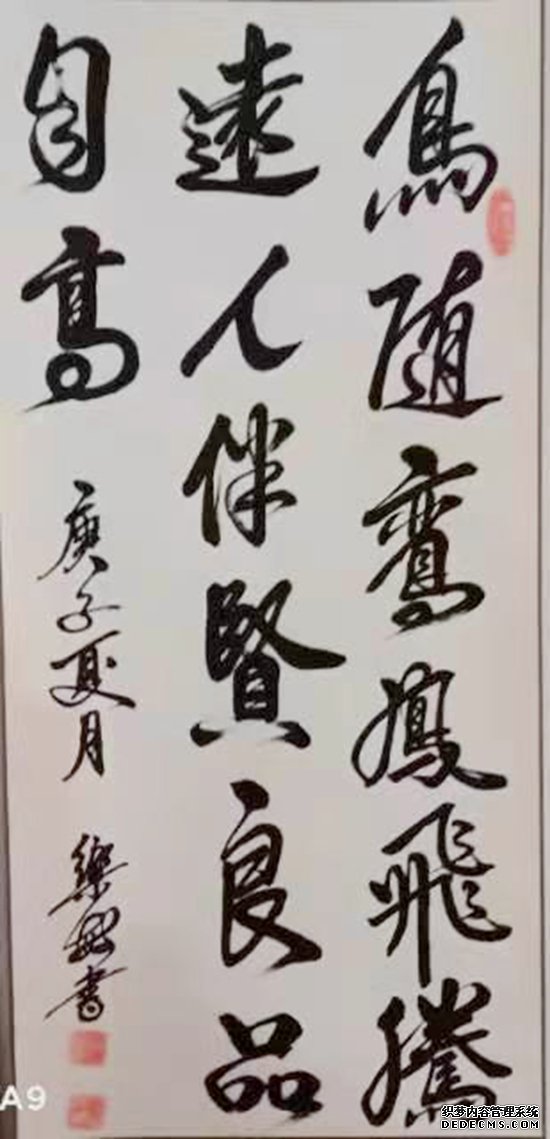 鳥随鸞鳳飛騰
遠人伴賢良品
自高
庚子夏月
書
A9
织梦内容管理系统
DEDECMS.COM